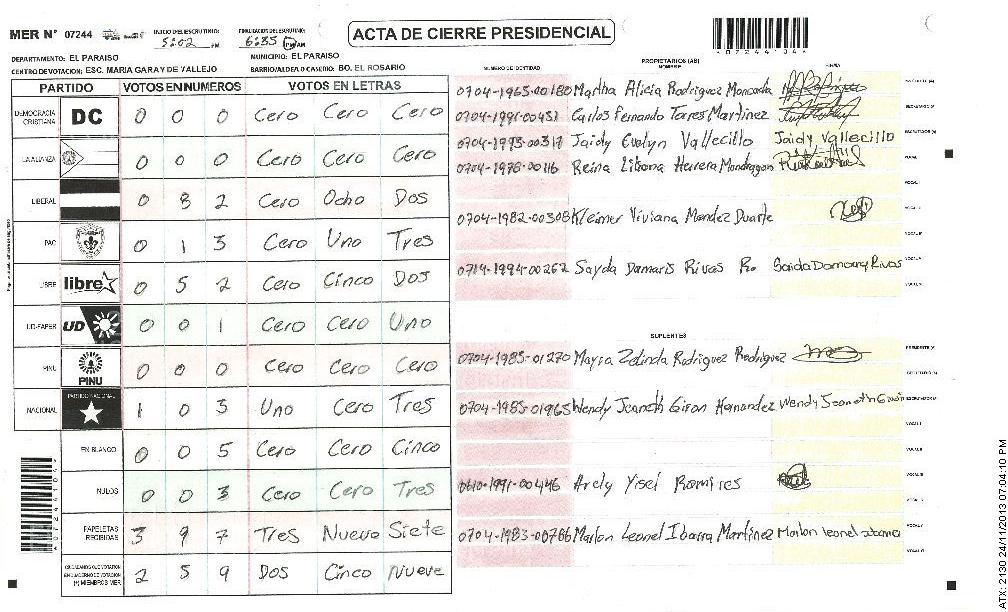 MER N° 07244
INICIO DEL ESCRUTINIO: 5:02 PM
FINALIZACION DEL ESCRUTINIO: 6:35 PM AM
ACTA DE CIERRE PRESIDENCIAL
0724404
DEPARTAMENTO: EL PARAISO
MUNICIPIO: EL PARAISO
CENTRO DE VOTACION: ESC. MARIA GARAY DE VALLEJO
BARRIO/ALDEA O CASERIO: BO. EL ROSARIO
PARTIDO VOTOS EN NUMEROS VOTOS EN LETRAS
DEMOCRACIA CRISTIANA DC 0 0 0 Cero Cero Cero
LA ALIANZA 0 0 0 Cero Cero Cero
LIBERAL 0 8 2 Cero Ocho Dos
PAC 0 1 3 Cero Uno Tres
LIBRE libre 0 5 2 Cero Cinco Dos
UD-FAPER UD 0 0 1 Cero Cero Uno
PINU PINU 0 0 0 Cero Cero Cero
NACIONAL PARTIDO NACIONAL 1 0 3 Uno Cero Tres
EN BLANCO 0 0 5 Cero Cero Cinco
NULOS 0 0 3 Cero Cero Tres
PAPELETAS RECIBIDAS 3 9 7 Tres Nueve Siete
CIUDADANOS QUE VOTARON EN CUADERNO DE VOTACION (+) MIEMBROS MER 2 5 9 Dos Cinco Nueve
NUMERO DE IDENTIDAD PROPIETARIOS (AS) NOMBRE FIRMA
0704-1965-00180 Martha Alicia Rodriguez Moncada
0704-1991-00451 Carlos Fernando Torres Martinez
0704-1993-00317 Jaidy Evelyn Vallecillo Jaidy Vallecillo
0704-1976-00116 Reina Herrera Mondragon
0704-1982-00308 Kleimer Viviana Mendez Duarte
0714-1994-00262 Sayda Damaris Rivas R.
SUPLENTES
0704-1985-01270 Mayra Zelinda Rodriguez Rodriguez
0704-1985-01965 Wendy Jeaneth Giron Hernandez Wendy Jeaneth Giron
0610-1991-00446 Arely Yisel Ramires
0704-1983-00786 Marlon Leonel Ibarra Martinez Marlon leonel
ATX: 2130 24/11/2013 07:04:10 PM